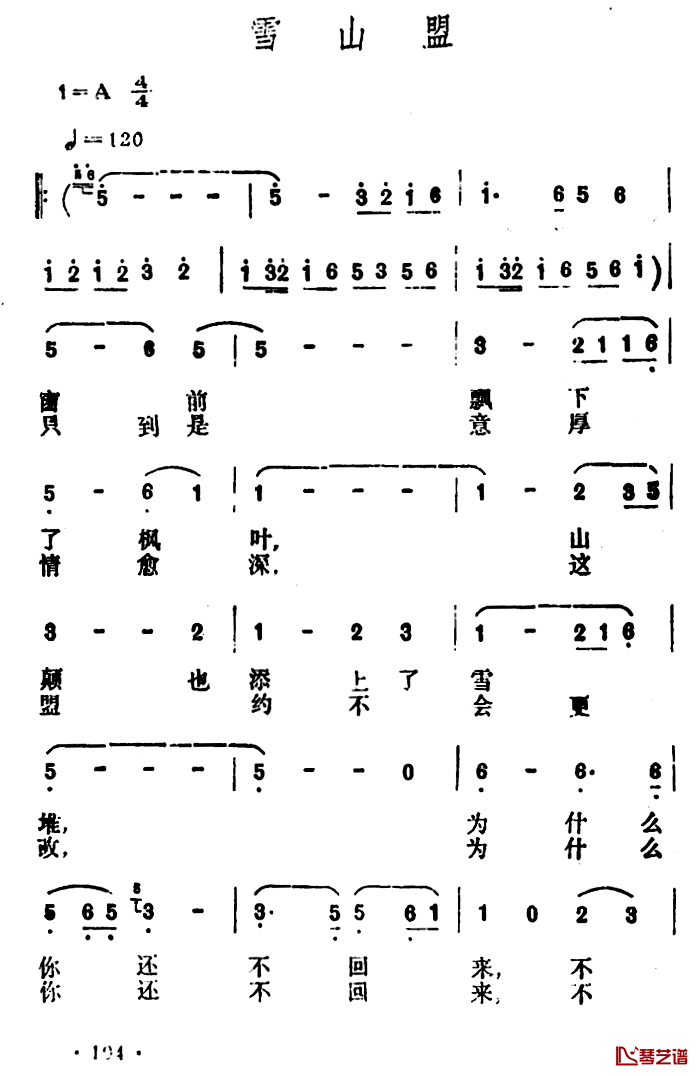 雪山盟
1=A 4/4
♩=120
56 5 - - - | 5 - 3 2 1 6 | 1· 6 5 6 |
1 2 1 2 3 2 | 1 32 1 6 5 3 5 6 | 1 32 1 6 5 6 1 )
5 - 6 5 | 5 - - - | 3 - 2 1 1 6
窗 前 飘 下
只 到 是 意 厚
5 - 6 1 | 1 - - - | 1 - 2 3 5
了 枫 叶, 山
情 愈 深, 这
3 - - 2 | 1 - 2 3 | 1 - 2 1 6
颠 也 添 上 了 雪
盟 约 不 会 更
5 - - - | 5 - - 0 | 6 - 6· 6
堆, 为 什 么
改, 为 什 么
5 6 5 5 3 - | 3· 5 5 6 1 | 1 0 2 3
你 还 不 回 来, 不
你 还 不 回 来, 不
·194·
琴艺谱